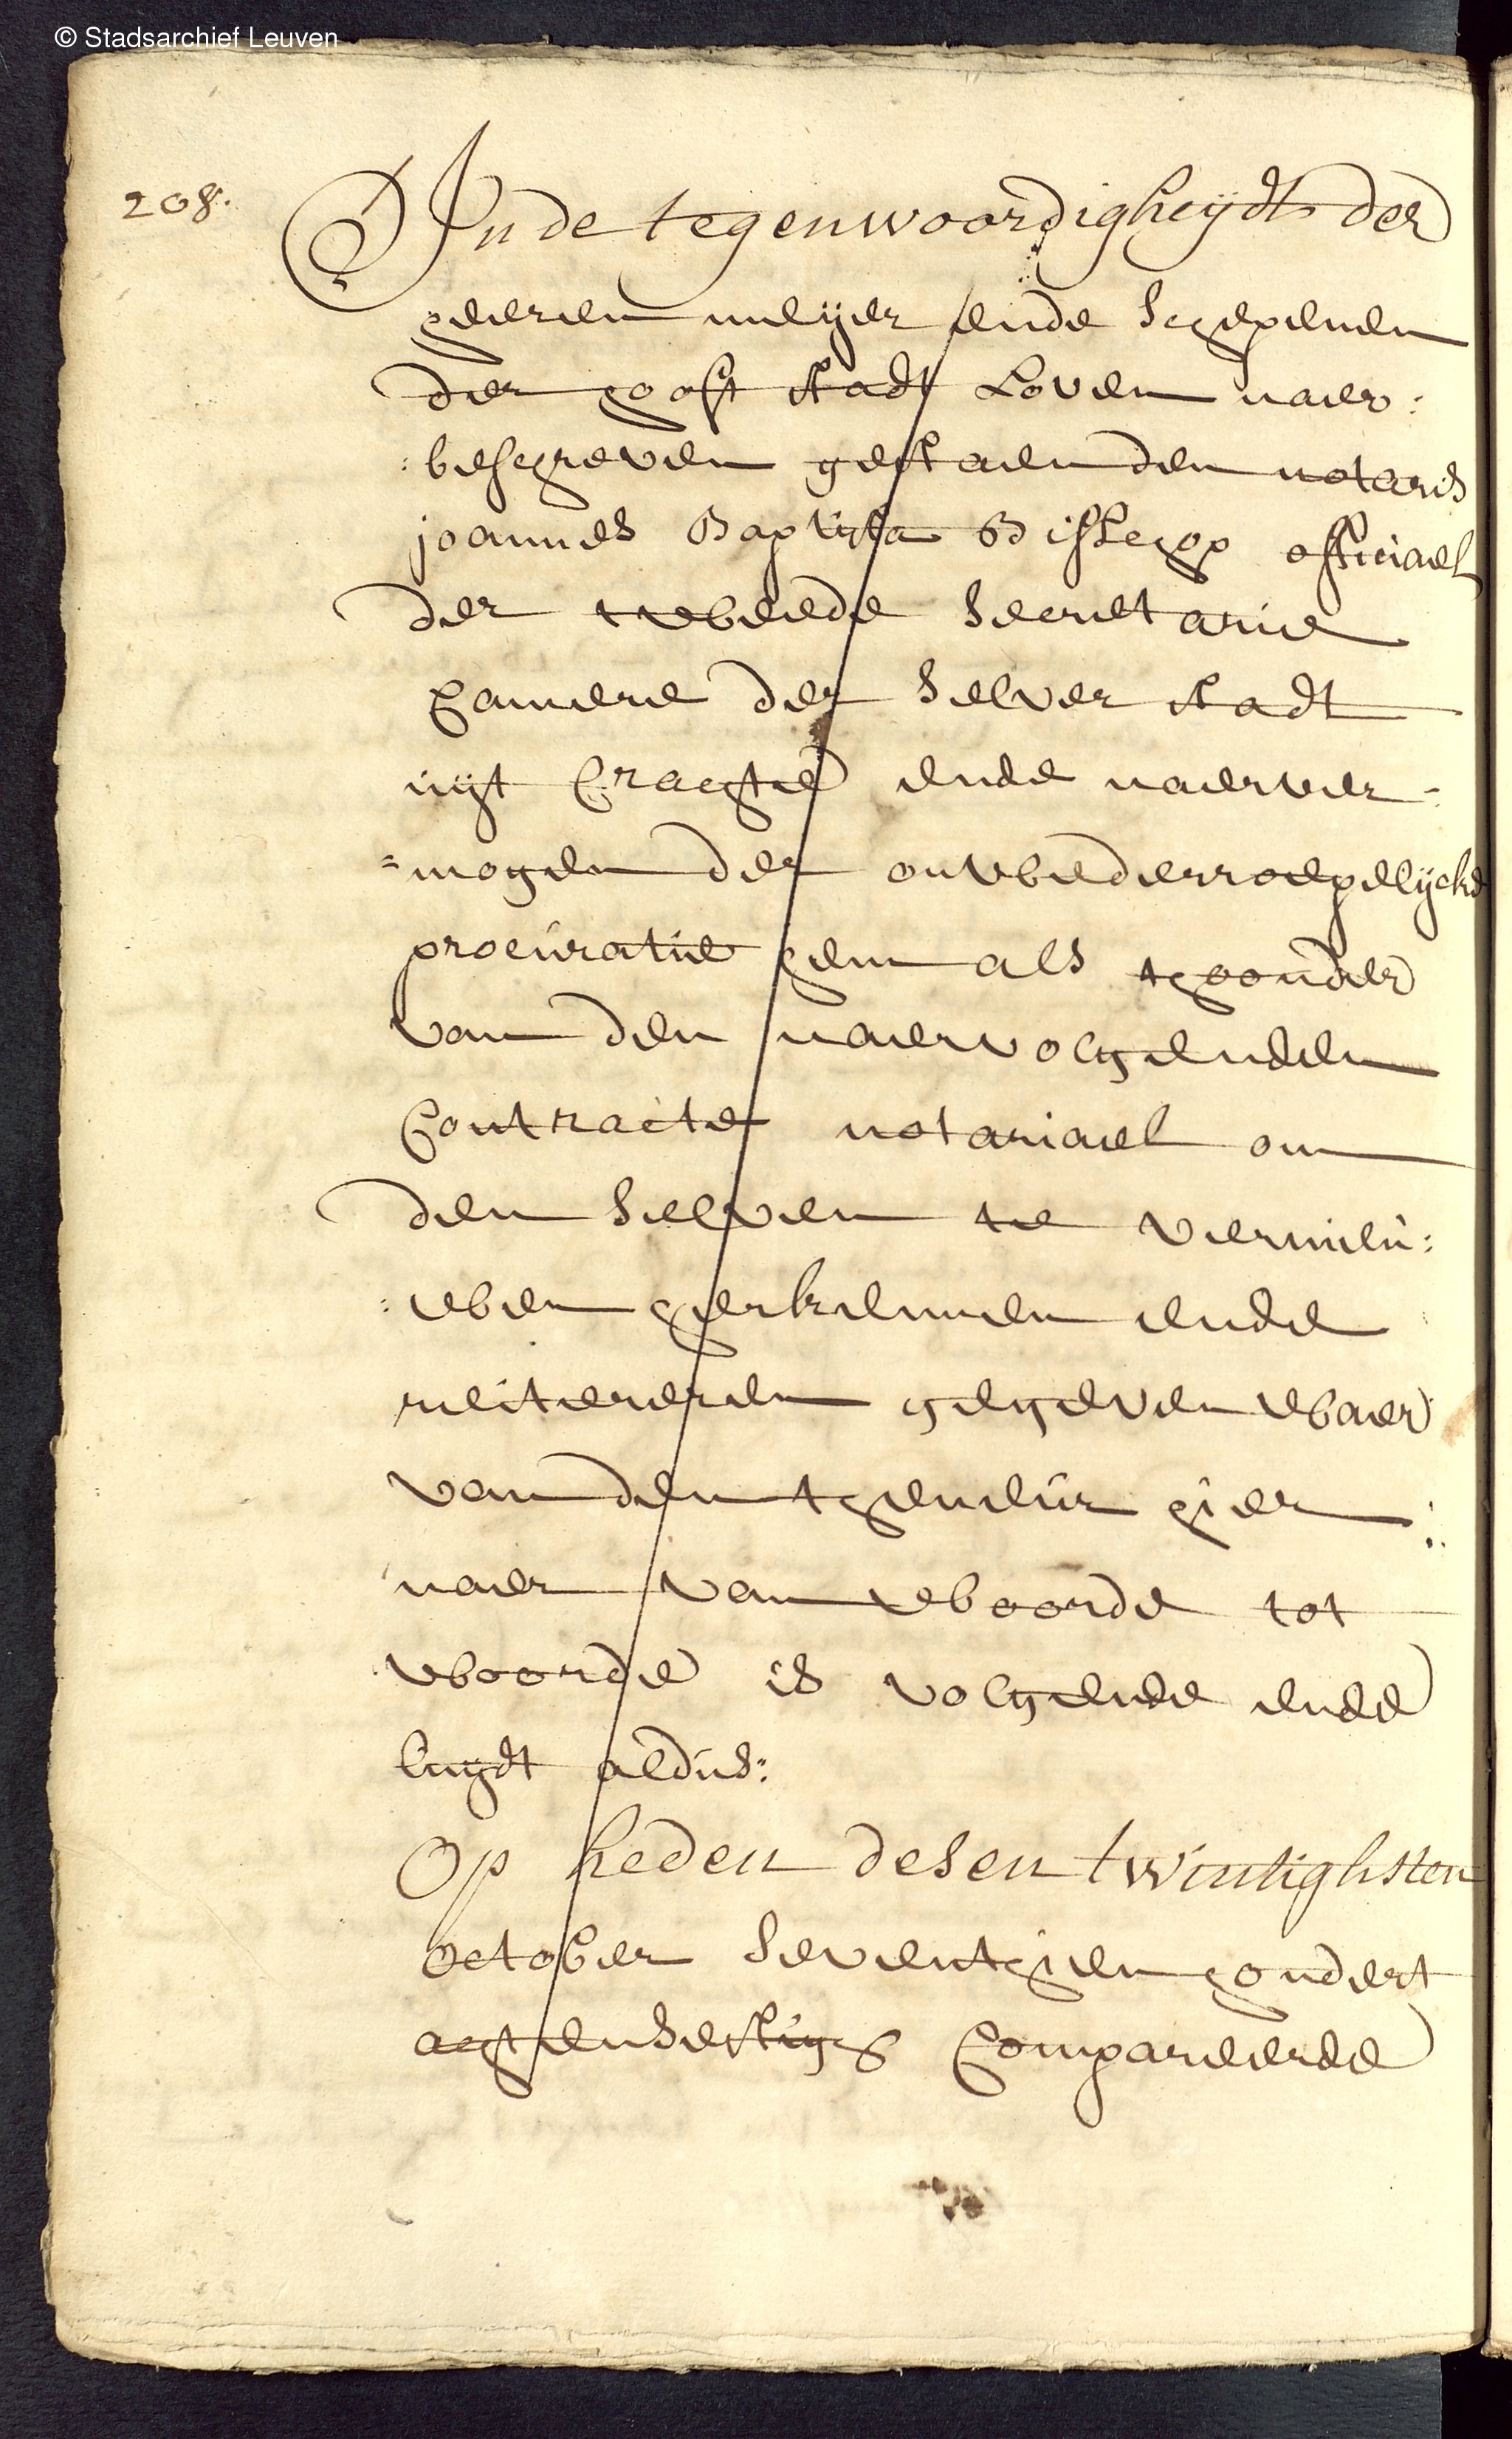 © Stadsarchief Leuven
208.
In de tegenwoordigheydt der
heeren meijer ende schepenen
der hooft stadt Loven naer:
:beschreven gestaen den notaris
joannes Baptista Bisschop officiael
der tweede secretarie
Camere der selver stadt
uijt Crachte ende naerver=
=mogen der onwederroepelijcke
procuratie hem als thoonder
van den naervolgenden
Contracte notariael om
den selven te vernieu:
:wen herkennen ende
reitereren gegeven waer
van den theneur hier:
naer van woorde tot
woorde is volgende ende
luydt aldus:
Op heden desen twintighsten
october seventhien hondert
achtensestigh Compareerde